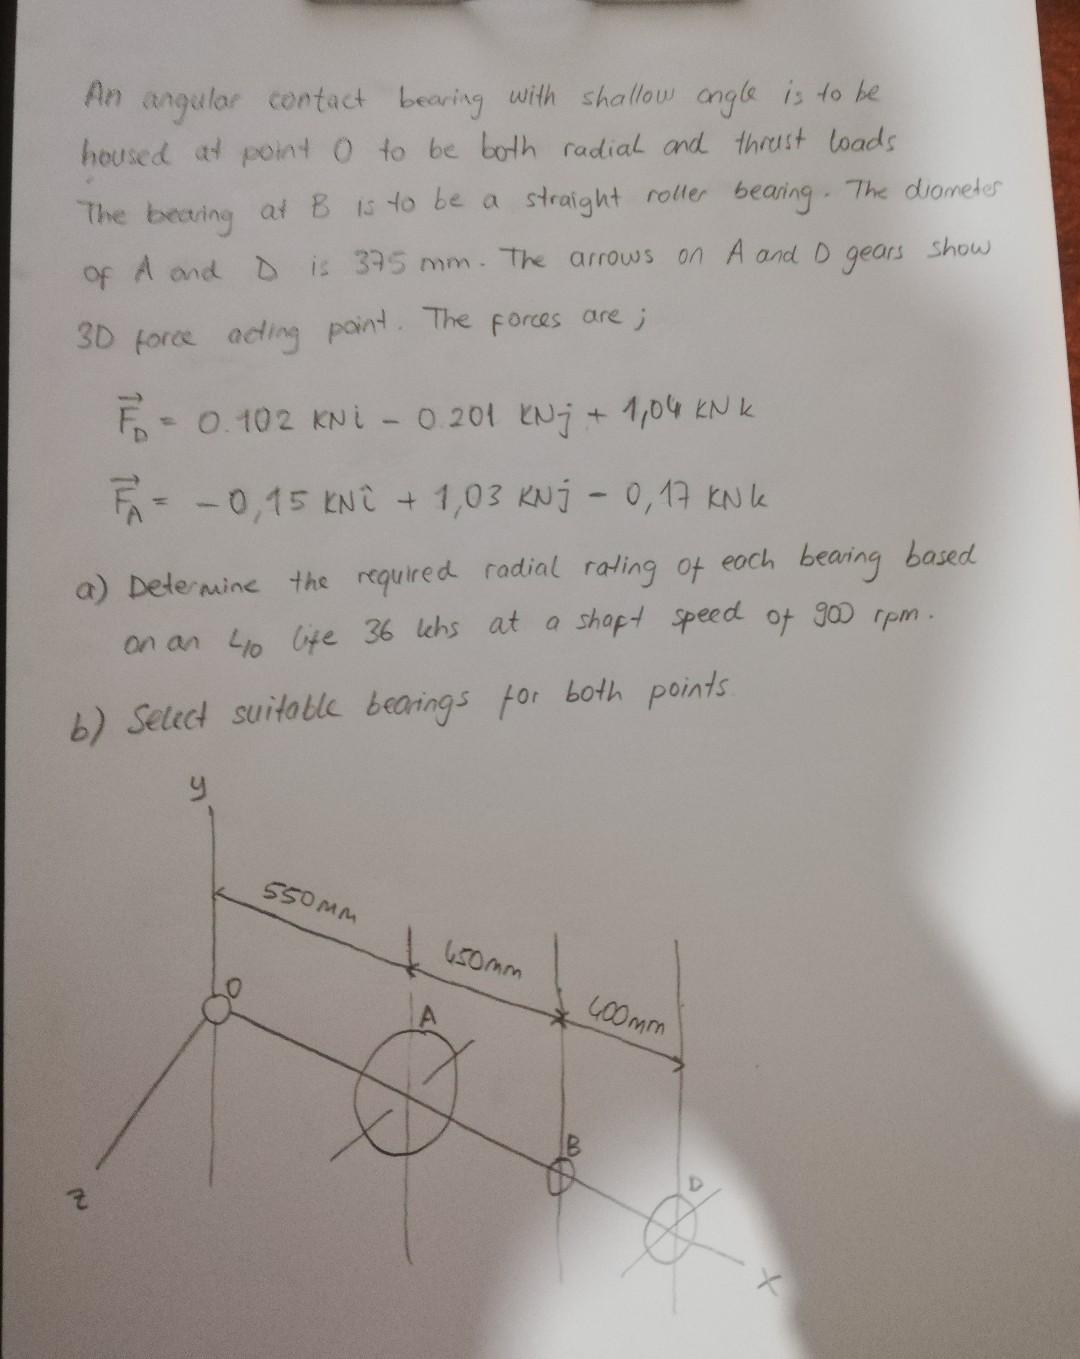 An angular contact bearing with shallow angle is to be
housed at point O to be both radial and thrust loads
The bearing at B is to be a straight roller bearing. The diameter
of A and D is 375 mm. The arrows on A and D gears show
3D force acting point. The forces are ;
F_D = 0.102 KNi - 0.201 KNj + 1,04 KN k
F_A = - 0,15 KNî + 1,03 KNj - 0,17 KNk
a) Determine the required radial rating of each bearing based
on an L10 life 36 khs at a shaft speed of 900 rpm.
b) Select suitable bearings for both points
y
550mm
450mm
400mm
O
A
B
D
z
x